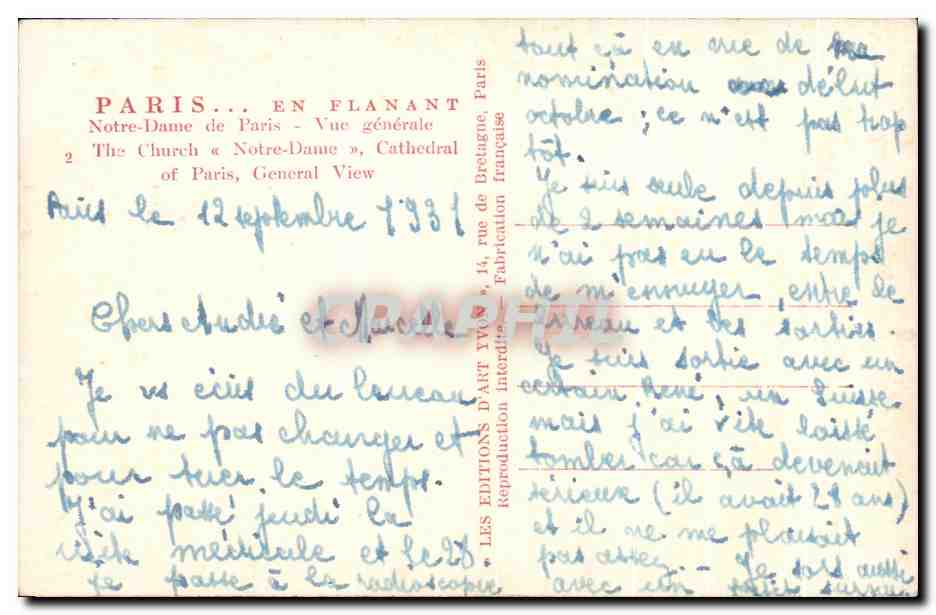 PARIS... EN FLANANT
Notre-Dame de Paris - Vue générale
2 The Church « Notre-Dame », Cathedral
of Paris, General View
Paris le 12 septembre 1931
Chers André et
Je vs écris du bureau
pour ne pas changer et
pour tuer le temps.
J'ai passé jeudi la
visite médicale et le 28
je passe à la radioscopie
LES EDITIONS D'ART YVON », 14, rue de Bretagne, Paris
Reproduction interdite — Fabrication française
tout çà en vue de ma
nomination début
octobre ; ce n'est pas trop
tôt.
Je suis seule depuis plus
de 2 semaines je
n'ai pas eu le temps
de m'ennuyer, entre le
bureau et les sorties.
Je suis sortie avec un
certain René, un Suisse
mais j'ai vite laissé
tomber car çà devenait
sérieux (il avait 28 ans)
et il ne me plaisait
pas assez. - Je sors aussi
avec un
CPArama